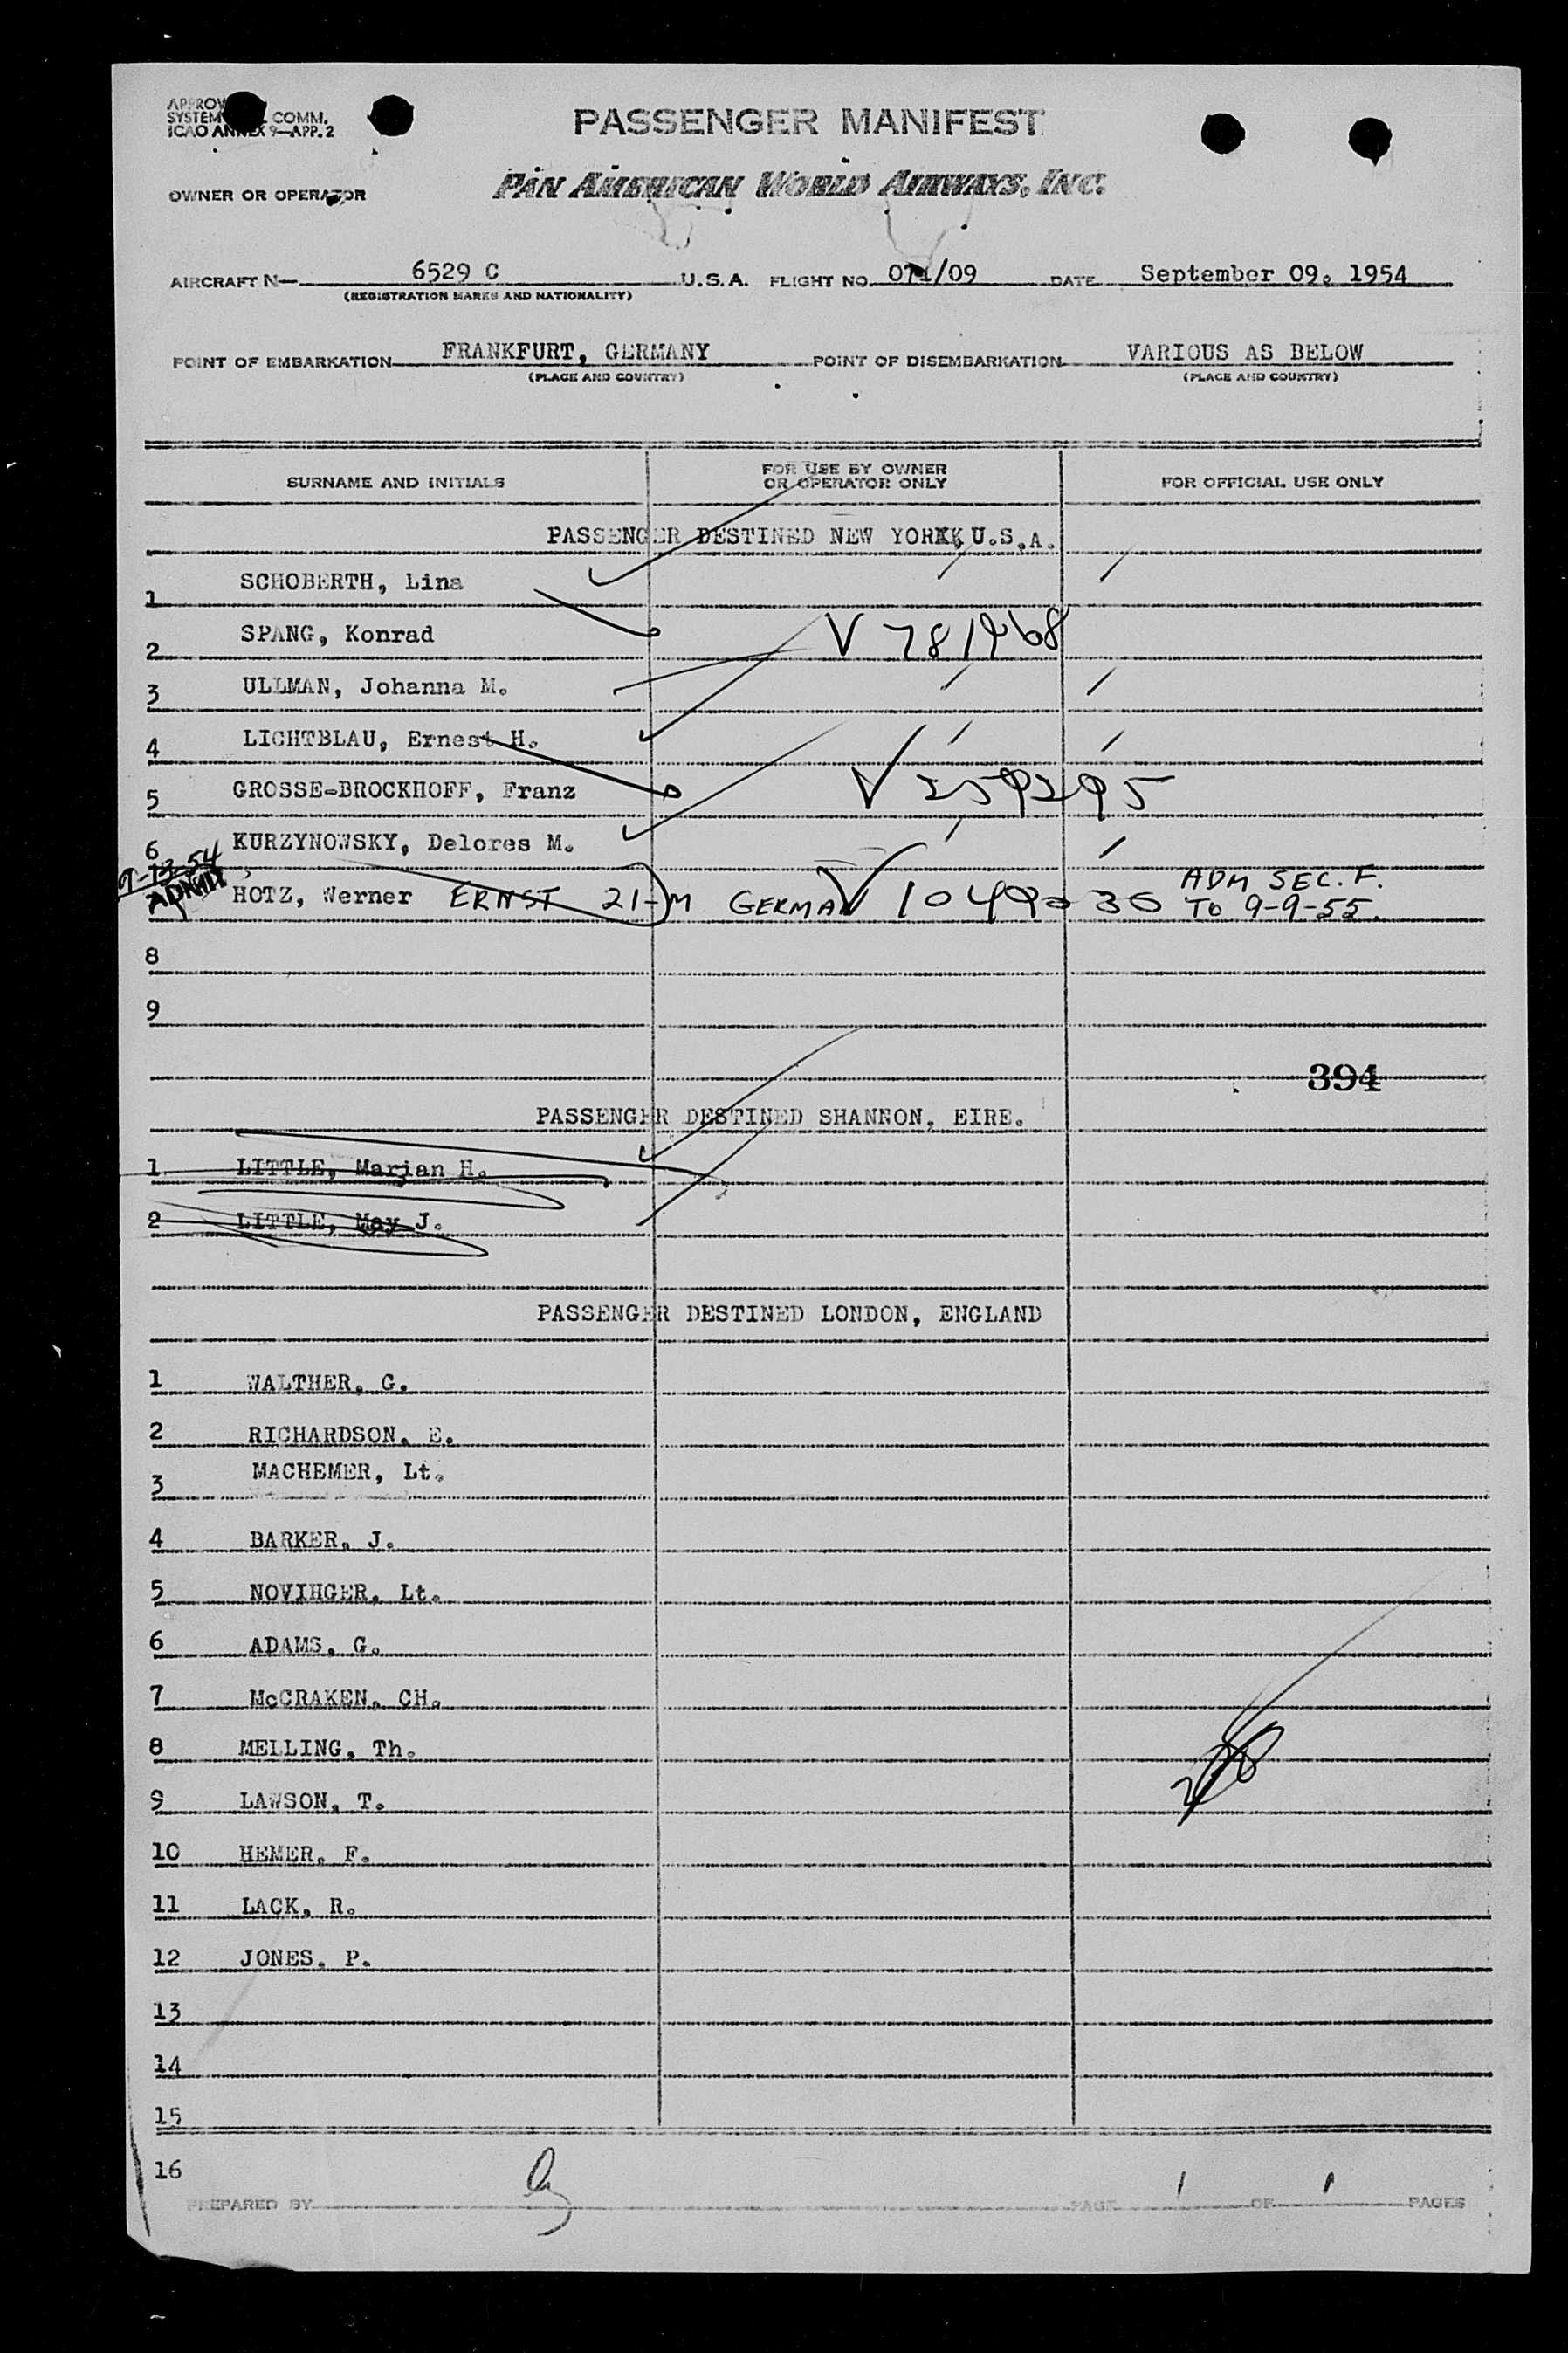 SYSTEM COMM.
ICAO ANNEX 9—APP. 2
PASSENGER MANIFEST
OWNER OR OPERATOR PAN AMERICAN WORLD AIRWAYS, INC.
AIRCRAFT N— 6529 C U.S.A. FLIGHT NO. 071/09 DATE September 09. 1954
(REGISTRATION MARKS AND NATIONALITY)
POINT OF EMBARKATION FRANKFURT, GERMANY POINT OF DISEMBARKATION VARIOUS AS BELOW
(PLACE AND COUNTRY) (PLACE AND COUNTRY)
SURNAME AND INITIALS FOR USE BY OWNER OR OPERATOR ONLY FOR OFFICIAL USE ONLY
PASSENGER DESTINED NEW YORK U.S.A.
1 SCHOBERTH, Lina
2 SPANG, Konrad V 781968
3 ULLMAN, Johanna M.
4 LICHTBLAU, Ernest H.
5 GROSSE-BROCKHOFF, Franz V 259295
6 KURZYNOWSKY, Delores M.
9-13-54
ADMIT
HOTZ, Werner ERNST 21-M GERMAN V ADM SEC. F.
TO 9-9-55.
8
9
394
PASSENGER DESTINED SHANNON, EIRE.
1 LITTLE, Marjan H.
2 LITTLE, May J.
PASSENGER DESTINED LONDON, ENGLAND
1 WALTHER. G.
2 RICHARDSON. E.
3 MACHEMER, Lt.
4 BARKER. J.
5 NOVIHGER. Lt.
6 ADAMS. G.
7 McCRAKEN. CH.
8 MELLING. Th.
9 LAWSON. T.
10 HEMER. F.
11 LACK. R.
12 JONES. P.
13
14
15
16
PREPARED BY PAGE 1 OF 1 PAGES